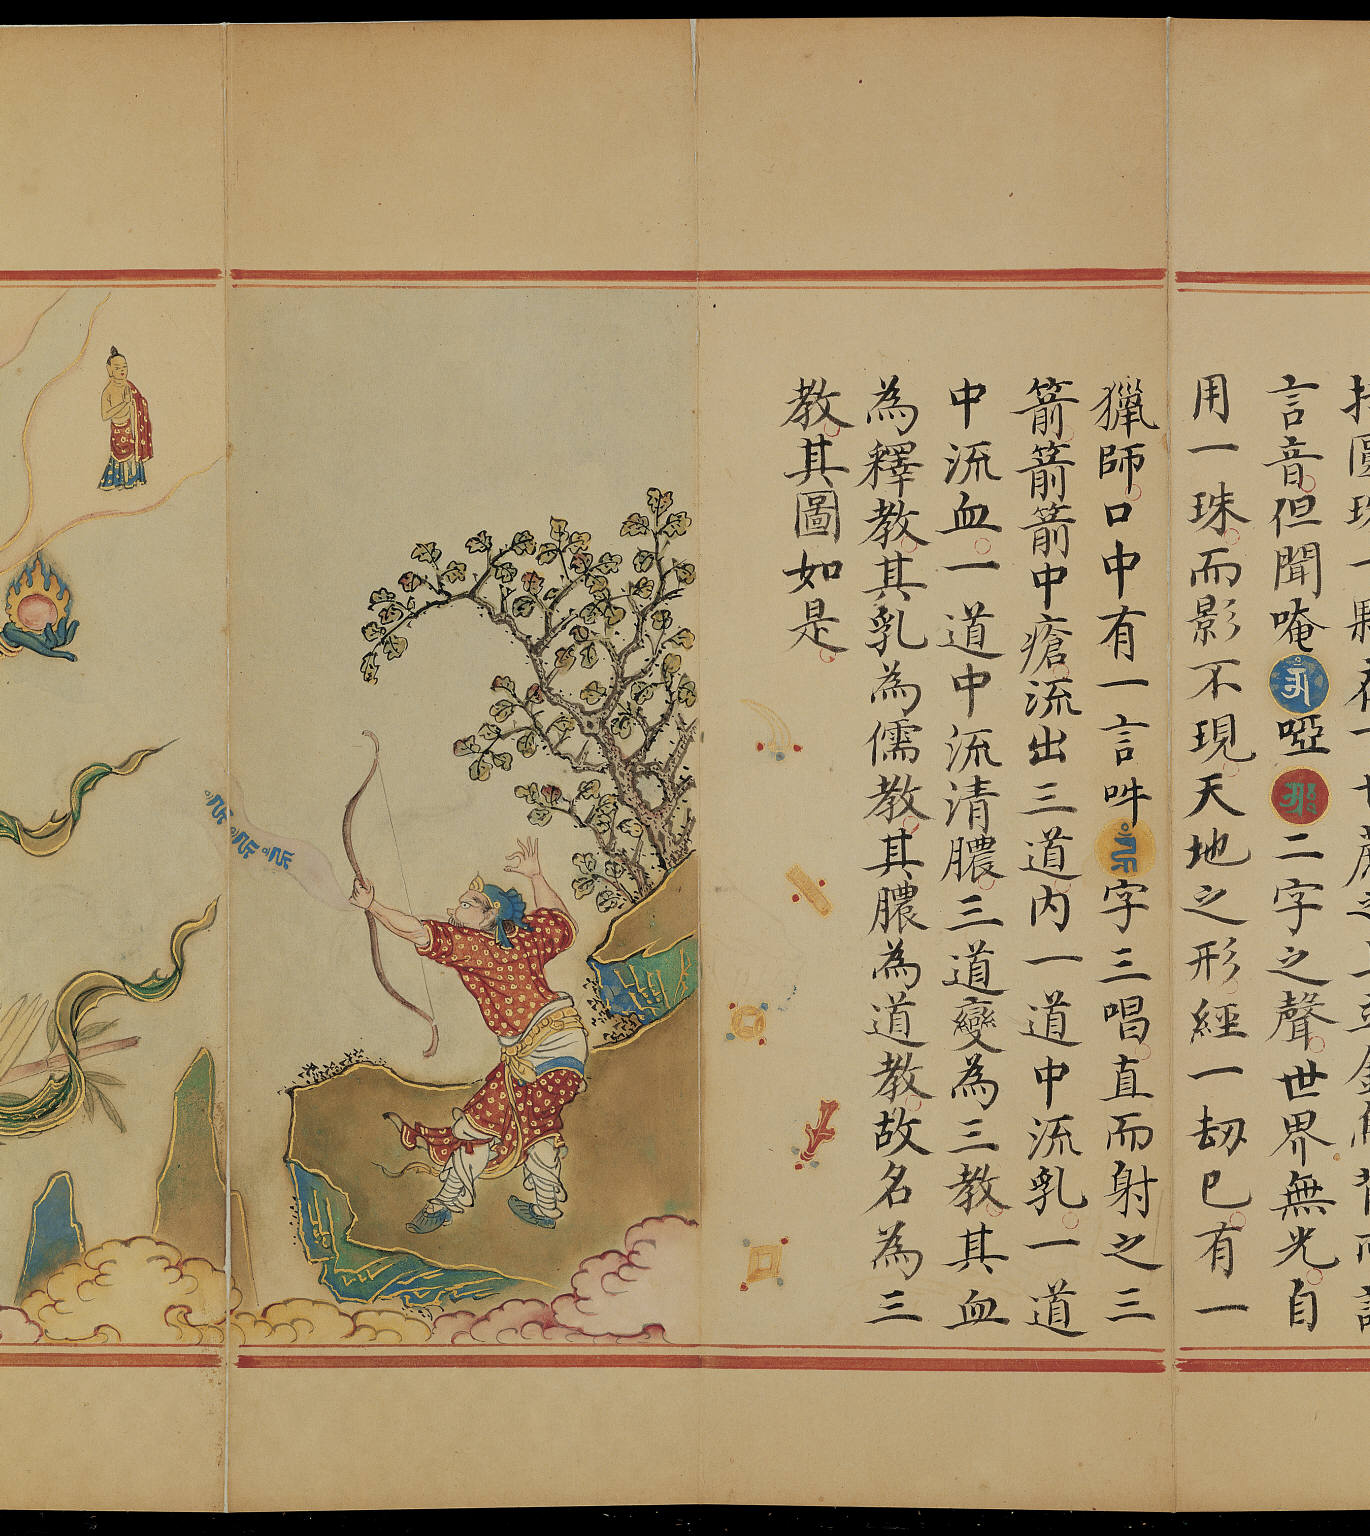 言音但聞唵啞二字之聲世界無光自
用一珠而影不現天地之形經一刧已有一
獵師口中有一言吽字三唱直而射之三
箭箭箭中瘡流出三道内一道中流乳一道
中流血一道中流清膿三道變為三教其血
為釋教其乳為儒教其膿為道教故名為三
教其圖如是